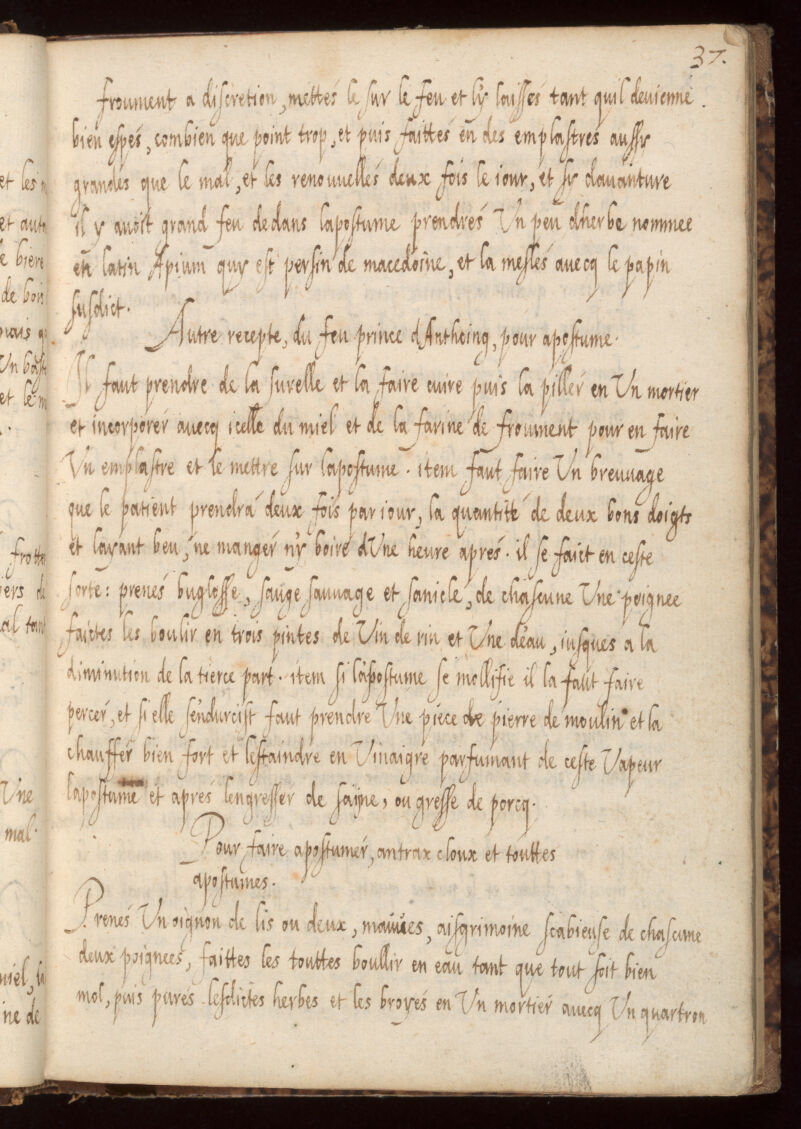 37.
froument a discretion, mettés le sur le feu et ly laissés tant quil devienne
bien espés, combien que point trop, et puis faittés en des emplastrés aussy
grandés que le mal, et les renouvellés deux fois le iour, et sy davanture
il y avoit grand feu dedans lapostume prendrés Un peu dherbe nommee
en latin Apium quy est persin de macedoine, et la meslés avecq le papin
susdict.
Autre recepte, du feu prince dAnthoing, pour apostume.
Il faut prendre de la surelle et la faire cuire puis la piller en Un mortier
et incorporer avecq icelle du miel et de la farine de froument pour en faire
Un emplastre et le mettre sur lapostume. item faut faire Un breuvage
que le patient prendra deux fois par iour, la quantité de deux bons doigts
et layant beu, ne manger ny boire dUne heure aprés. il se faict en ceste
sorte: prenés buglosse, sauge sauvage et sanicle, de chascune Une poignee
faictes les boulir en trois pintes de Vin de rin et Une déau, iusques a la
diminution de la tierce part. item si lapostume se mollifie il la faut faire
percer, et si elle séndurcist faut prendre Une piece de pierre de moulin et la
chauffer bien fort et lestaindre en Vinaigre parfumant de ceste Vapeur
lapostume et aprés lengresser de saijne, ou gresse de porcq.
Pour faire apostumer, antrax cloux et touttes
apostumes.
Prenés Un oignon de lis ou deux, mauves, aisgrimoine scabieuse de chascune
deux poignees, faittes les touttes boullir en eau tant que tout soit bien
mol, puis purés lesdictes herbes et les broyés en Un mortier avecq Un quartron